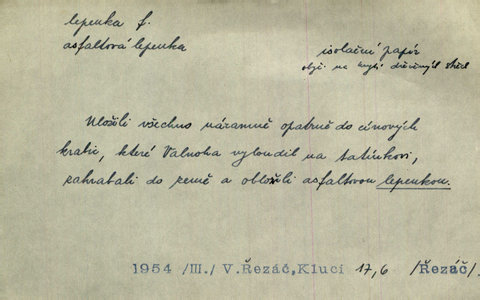 lepenka f.
asfaltová lepenka
isolační papír
obyč. na krytí dřevěných střech
Uložili všechno náramně opatrně do cínových
krabic, které Valnoha vyloudil na tatínkovi,
zahrabali do země a obložili asfaltovou lepenkou.
1954 /III./ V.Řezáč,Kluci 17,6 /Řezáč/.